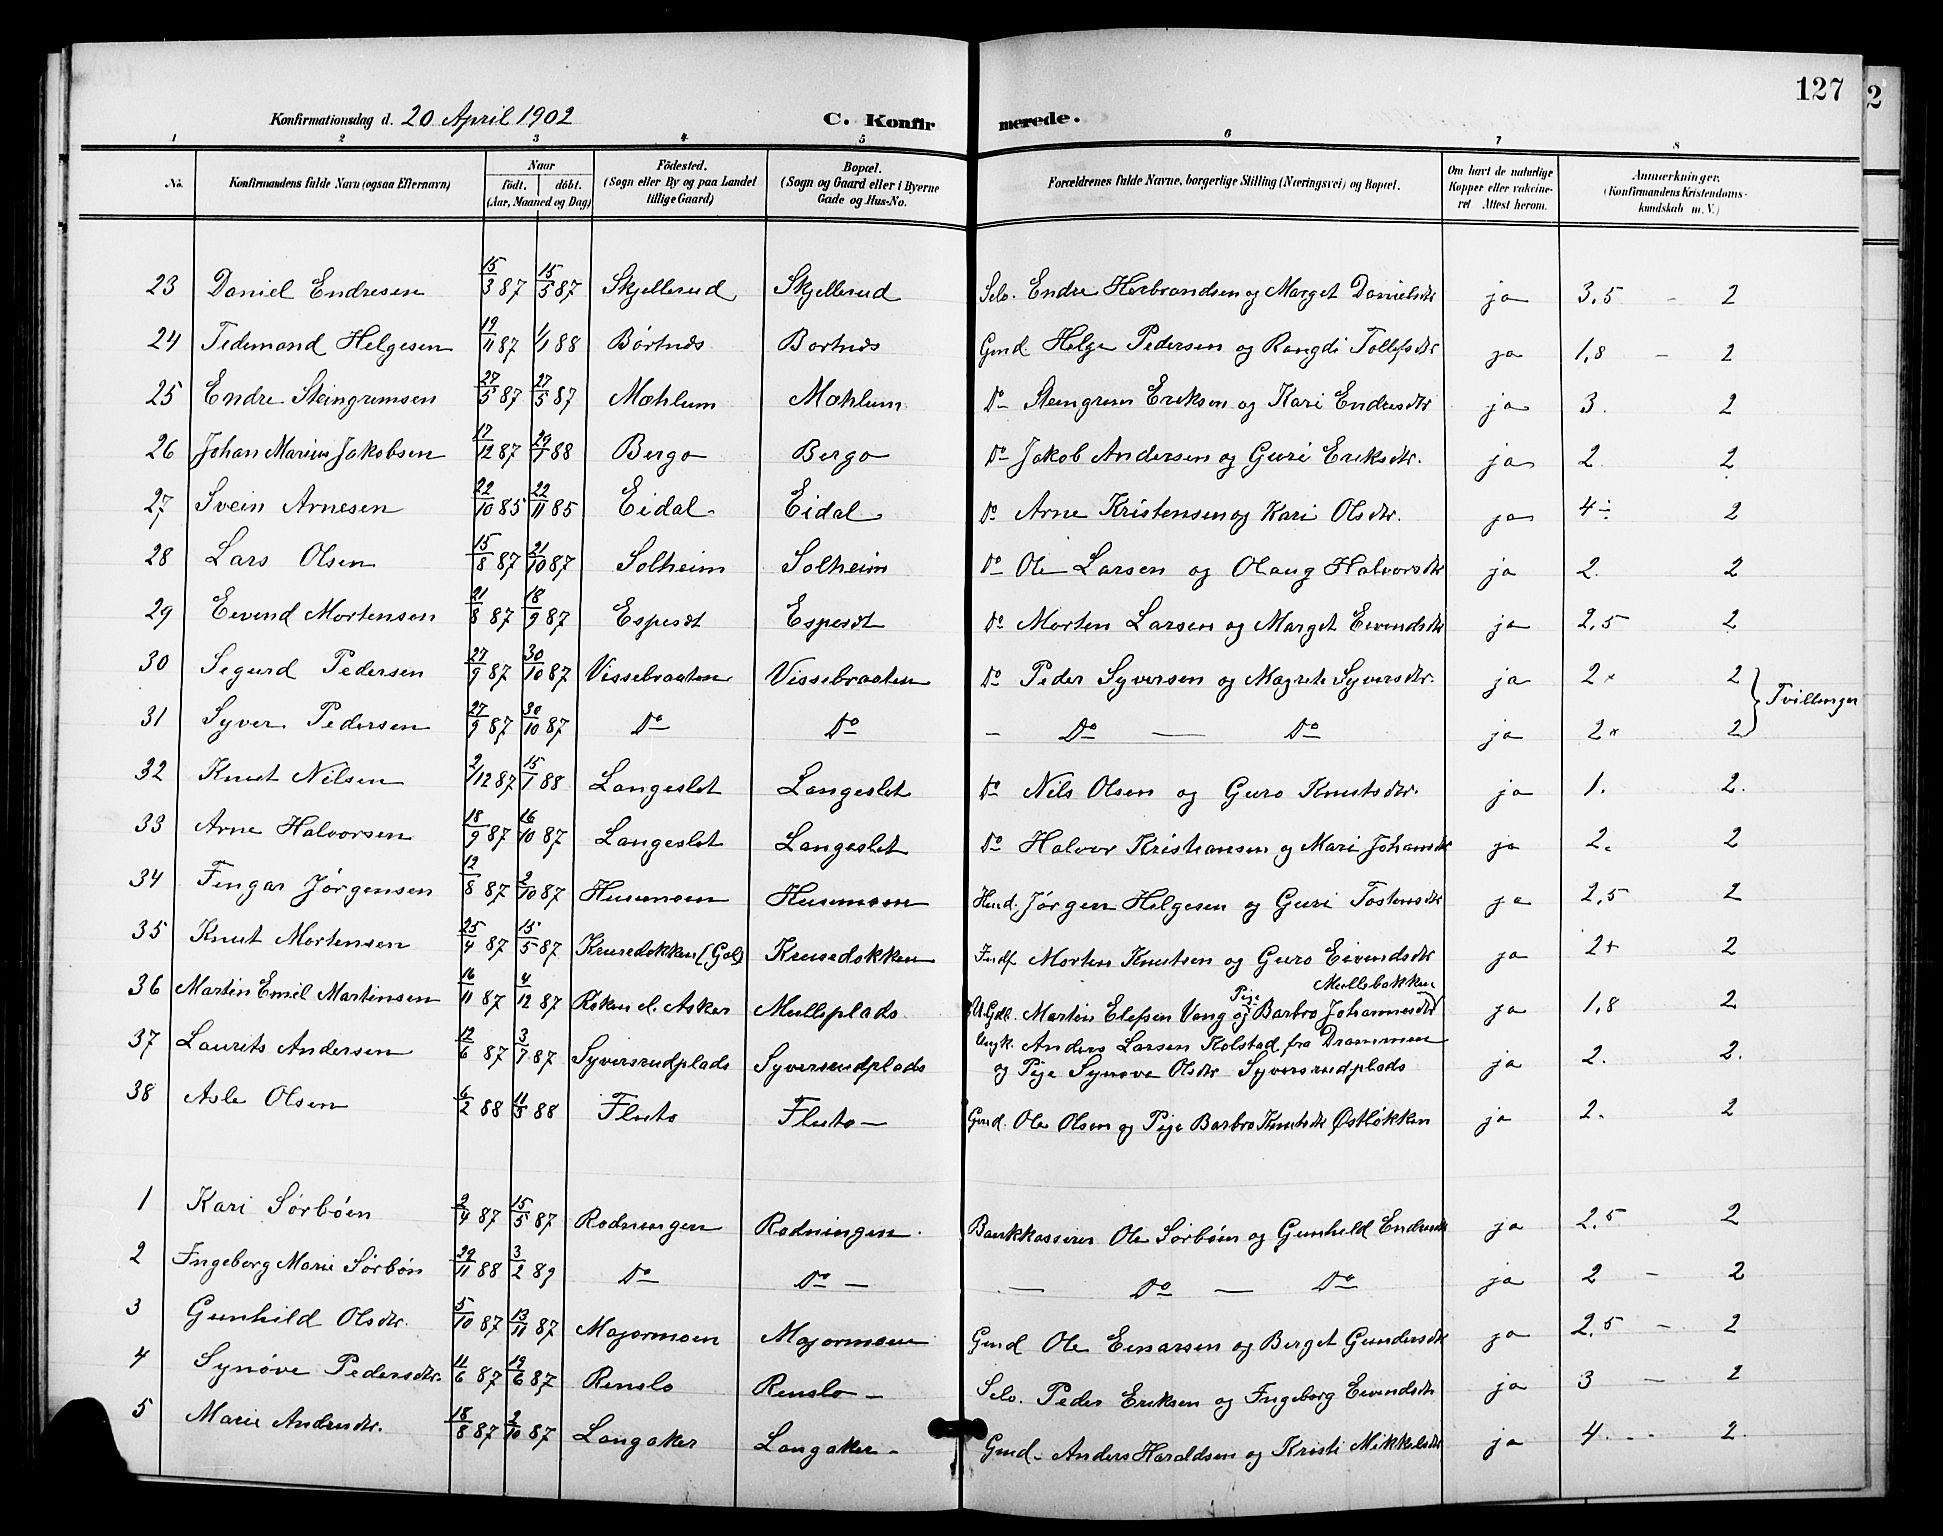 127
2
Konfirmationsdag d. 20 April 1902 C. Konfirmerede.
1 2 3 4 5 6 7 8
No. Konfirmandens fulde Navn (ogsaa Efternavn) Naar født. døbt. (Aar, Maaned og Dag) Födested. (Sogn eller By og paa Landet tillige Gaard) Bopæl. (Sogn og Gaard eller i Byerne Gade og Hus-No. Forældrenes fulde Navne, borgerlige Stilling (Næringsvei) og Bopæl. Om havt de naturlige Kopper eller vakcineret Attest herom. Anmærkninger. (Konfirmandens Kristendomskundskab m. V.)
23 Daniel Endresen 15/3 87 15/5 87 Skjellerud Skjellerud Selv. Endre Herbrandsen og Marget Danielsdtr ja 3,5 - 2
24 Tidemand Helgesen 19/11 87 1/1 88 Børtnæs Bortnæs Gmd. Helge Pedersen og Rangdi Tollefsdtr ja 1,8 - 2
25 Endre Steingrimsen 27/5 87 27/5 87 Mæhlum Mæhlum Do Steingrim Eriksen og Kari Endresdtr ja 3. 2
26 Johan Marius Jakobsen 17/12 87 29/1 88 Bergo Bergo Do Jakob Andersen og Guri Eriksdtr. ja 2. 2
27 Svein Arnesen 22/10 85 22/11 85 Eidal Eidal Do Arne Kristensen og Kari Olsdtr. ja 4 ÷ 2
28 Lars Olsen 15/8 87 21/10 87 Solheim Solheim Do Ole Larsen og Olaug Halvorsdtr ja 2. 2
29 Eivend Mortensen 21/8 87 18/9 87 Espeset Espeset Do Morten Larsen og Marget Eivendsdtr ja 2,5 2
30 Segurd Pedersen 27/9 87 30/10 87 Vissebraaten Vissebraaten Do Peder Syversen og Magrete Syversdtr. ja 2 × 2 } Tvillinger
31 Syver Pedersen 27/9 87 30/10 87 Do Do - Do - Do ja 2 × 2
32 Knut Nilsen 2/12 87 15/1 88 Langeslet Langeslet Do Nils Olsen og Guro Knutsdtr. ja 1. 2.
33 Arne Halvorsen 18/9 87 16/10 87 Langeslet Langeslet Do Halvor Kristiansen og Mari Johansdtr ja 2. 2
34 Fingar Jørgensen 12/8 87 2/10 87 Husemoen Husemoen Hmd. Jørgen Helgesen og Guri Tostensdtr ja 2,5 2
35 Knut Mortensen 25/4 87 15/5 87 Krusedokken (Gol) Krusedokken Indf Morten Knutsen og Guro Eivendsdtr ja 2 + 2
36 Martin Emil Martinsen 16/11 87 4/12 87 Røken d. Asker Mulleplads Ugdl. Martin Elefsen Vang og Pige Barbro Johannesdtr Mullebakken ja 1,8 2
37 Laurits Andersen 12/6 87 3/7 87 Syversrudplads Syversrudplads Ungk. Anders Larsen Kolstad fra Drammen
og Pige Synøve Olsdtr Syversrudplads ja 2. 2.
38 Asle Olsen 6/2 88 11/3 88 Fluto Fluto - Gmd. Ole Olsen og Pige Barbro Knutsdtr Østløkken ja 2. 2
1 Kari Sørbøen 2/4 87 15/5 87 Rodningen Rodningen. Bankkasserer Ole Sørbøen og Gunhild Endresdtr ja 2,5 2
2 Ingeborg Marie Sørbøn 29/11 88 3/2 89 Do Do - - Do - Do ja 2 - 2
3 Gunhild Olsdtr. 5/10 87 13/11 87 Majormoen Majormoen Gmd Ole Einarsen og Berget Gundersdtr ja 2,5 - 2
4 Synøve Pedersdtr. 11/6 87 19/6 87 Renslo Renslo - Selv. Peder Eriksen og Ingeborg Eivendsdtr ja 3 - 2
5 Marie Andersdtr. 18/8 87 2/10 87 Langaker Langaker - Gmd - Anders Haraldsen og Kristi Mikkelsdtr ja 4 - - - 2.